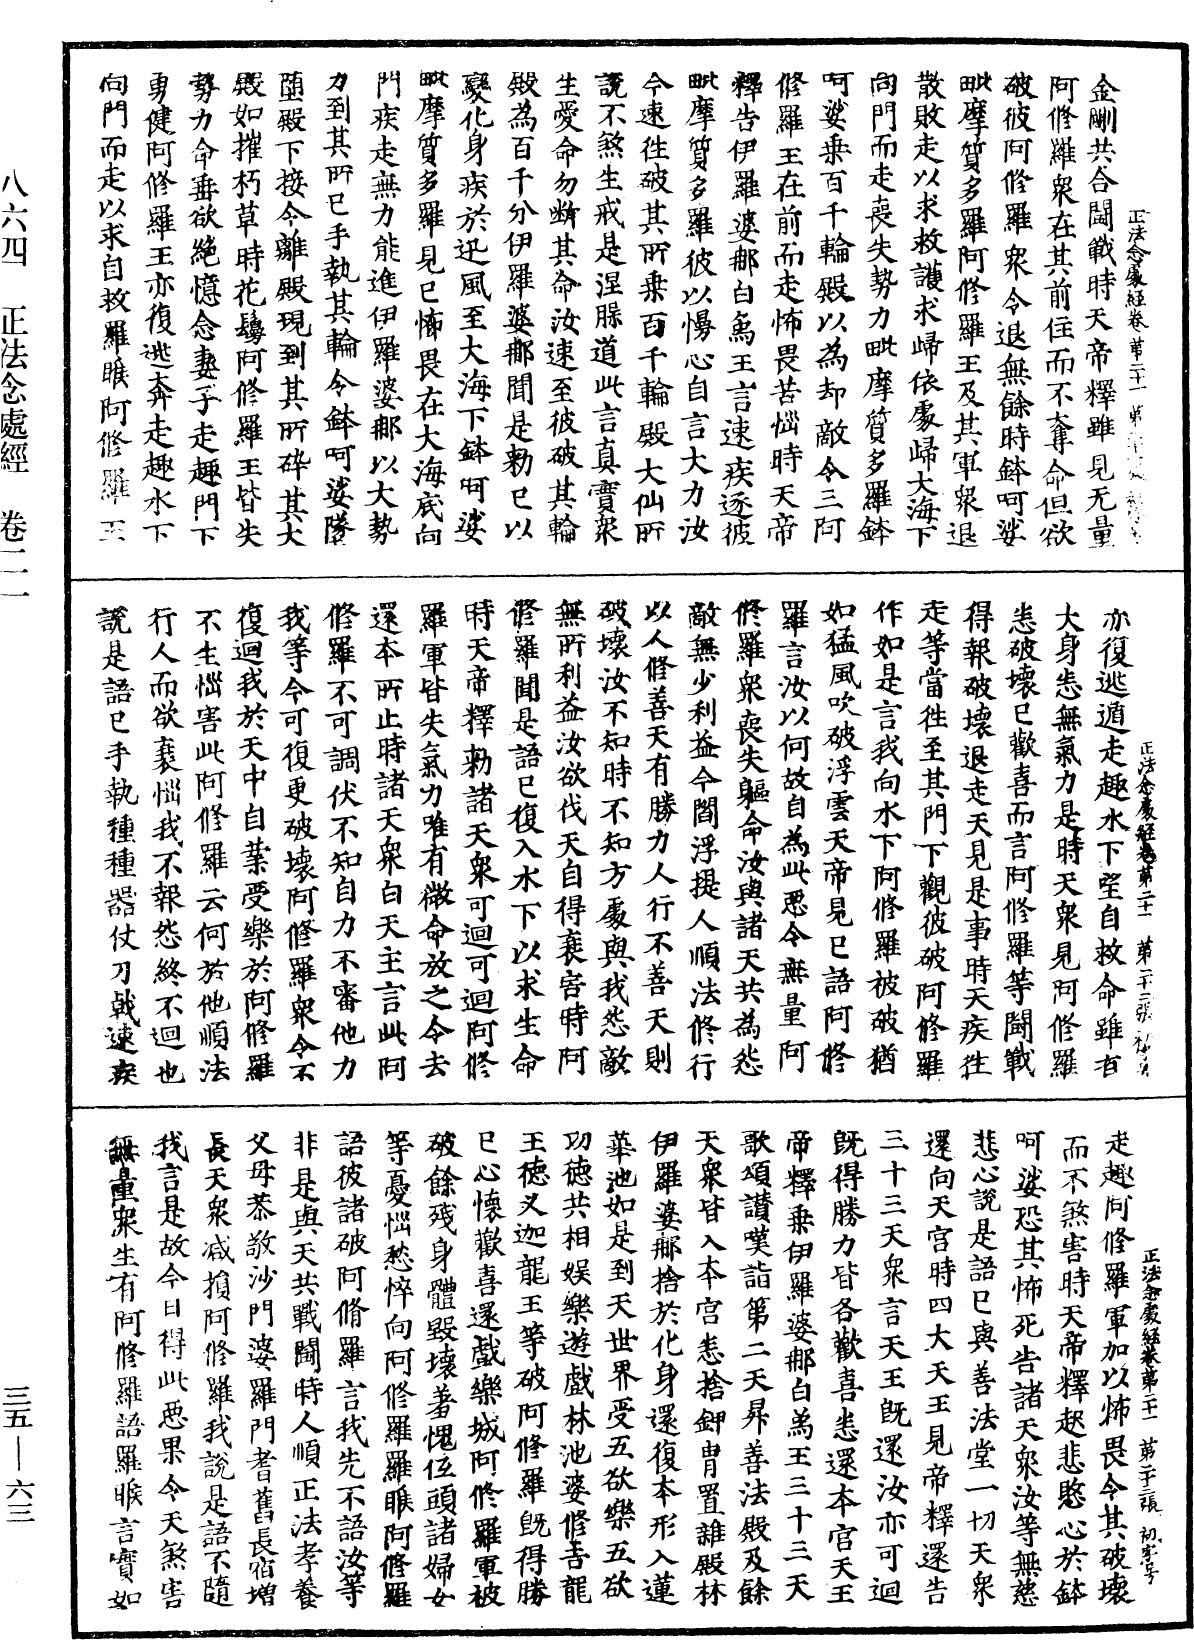 金剛共合鬪戰時天帝釋雖見无量
阿修羅衆在其前住而不奪命但欲
破彼阿修羅衆令退無餘時鉢呵娑
毗摩質多羅阿修羅王及其軍衆退
散敗走以求救護求歸依處歸大海下
向門而走喪失勢力毗摩質多羅鉢
呵娑乗百千輪殿以為却敵令三阿
修羅王在前而走怖畏苦惱時天帝
釋告伊羅婆那白象王言速疾逐彼
毗摩質多羅彼以慢心自言大力汝
今速往破其所乗百千輪殿大仙所
說不煞生戒是涅牃道此言真實衆
生愛命勿斷其命汝速至彼破其輪
殿為百千分伊羅婆那聞是勑已以
變化身疾於迅風至大海下鉢呵娑
毗摩質多羅見已怖畏在大海底向
門疾走無力能進伊羅婆那以大勢
力到其所已手執其輪令鉢呵娑墜
墮殿下接令離殿現到其所碎其大
殿如摧朽草時花鬘阿修羅王皆失
勢力命垂欲絕憶念妻子走趣門下
勇健阿修羅王亦復逃奔走趣水下
向門而走以求自救羅睺阿修羅王
亦復逃遁走趣水下望自救命雖有
大身悉無氣力是時天衆見阿修羅
悉破壞已歡喜而言阿修羅等鬪戰
得報破壞退走天見是事時天疾往
走等當往至其門下觀彼破阿修羅
作如是言我向水下阿修羅被破猶
如猛風吹破浮雲天帝見已語阿修
羅言汝以何故自為此惡令無量阿
修羅衆喪失軀命汝與諸天共為怨
敵無少利益今閻浮提人順法修行
以人修善天有勝力人行不善天則
破壞汝不知時不知方處與我怨敵
無所利益汝欲伐天自得衰害時阿
修羅聞是語已復入水下以求生命
時天帝釋勑諸天衆可迴可迴阿修
羅軍皆失氣力唯有微命放之令去
還本所止時諸天衆白天主言此阿
修羅不可調伏不知自力不審他力
我等今可復更破壞阿修羅衆令不
復迴我於天中自業受樂於阿修羅
不生惱害此阿修羅云何於他順法
行人而欲衰惱我不報怨終不迴也
說是語已手執種種器仗刀戟速疾
走趣阿修羅軍加以怖畏令其破壞
而不煞害時天帝釋起悲愍心於鉢
呵娑恐其怖死告諸天衆汝等無慈
悲心說是語已與善法堂一切天衆
還向天宮時四大天王見帝釋還告
三十三天衆言天王既還汝亦可迴
既得勝力皆各歡喜悉還本宮天王
帝釋乗伊羅婆那白象王三十三天
歌頌讃嘆詣第二天昇善法殿及餘
天衆皆入本宮悉捨鉀冑置雜殿林
伊羅婆那捨於化身還復本形入蓮
華池如是到天世界受五欲樂五欲
功德共相娛樂遊戲林池婆修吉龍
王德叉迦龍王等破阿修羅既得勝
已心懷歡喜還戲樂城阿修羅軍被
破餘殘身體毀壞著愧低頭諸婦女
等憂惱愁悴向阿修羅羅睺阿修羅
語彼諸破阿脩羅言我先不語汝等
非是與天共戰鬪時人順正法孝養
父母恭敬沙門婆羅門耆舊長宿增
長天衆減損阿修羅我說是語不隨
我言是故今日得此惡果今天煞害
無量衆生有阿修羅語羅睺言實如
正法念處經卷第二十一
正法念處經卷第二十一 第二十二張
正法念處經卷第二十一 第二十三張 初字号
八六四 正法念處經 卷二一
三五—六三